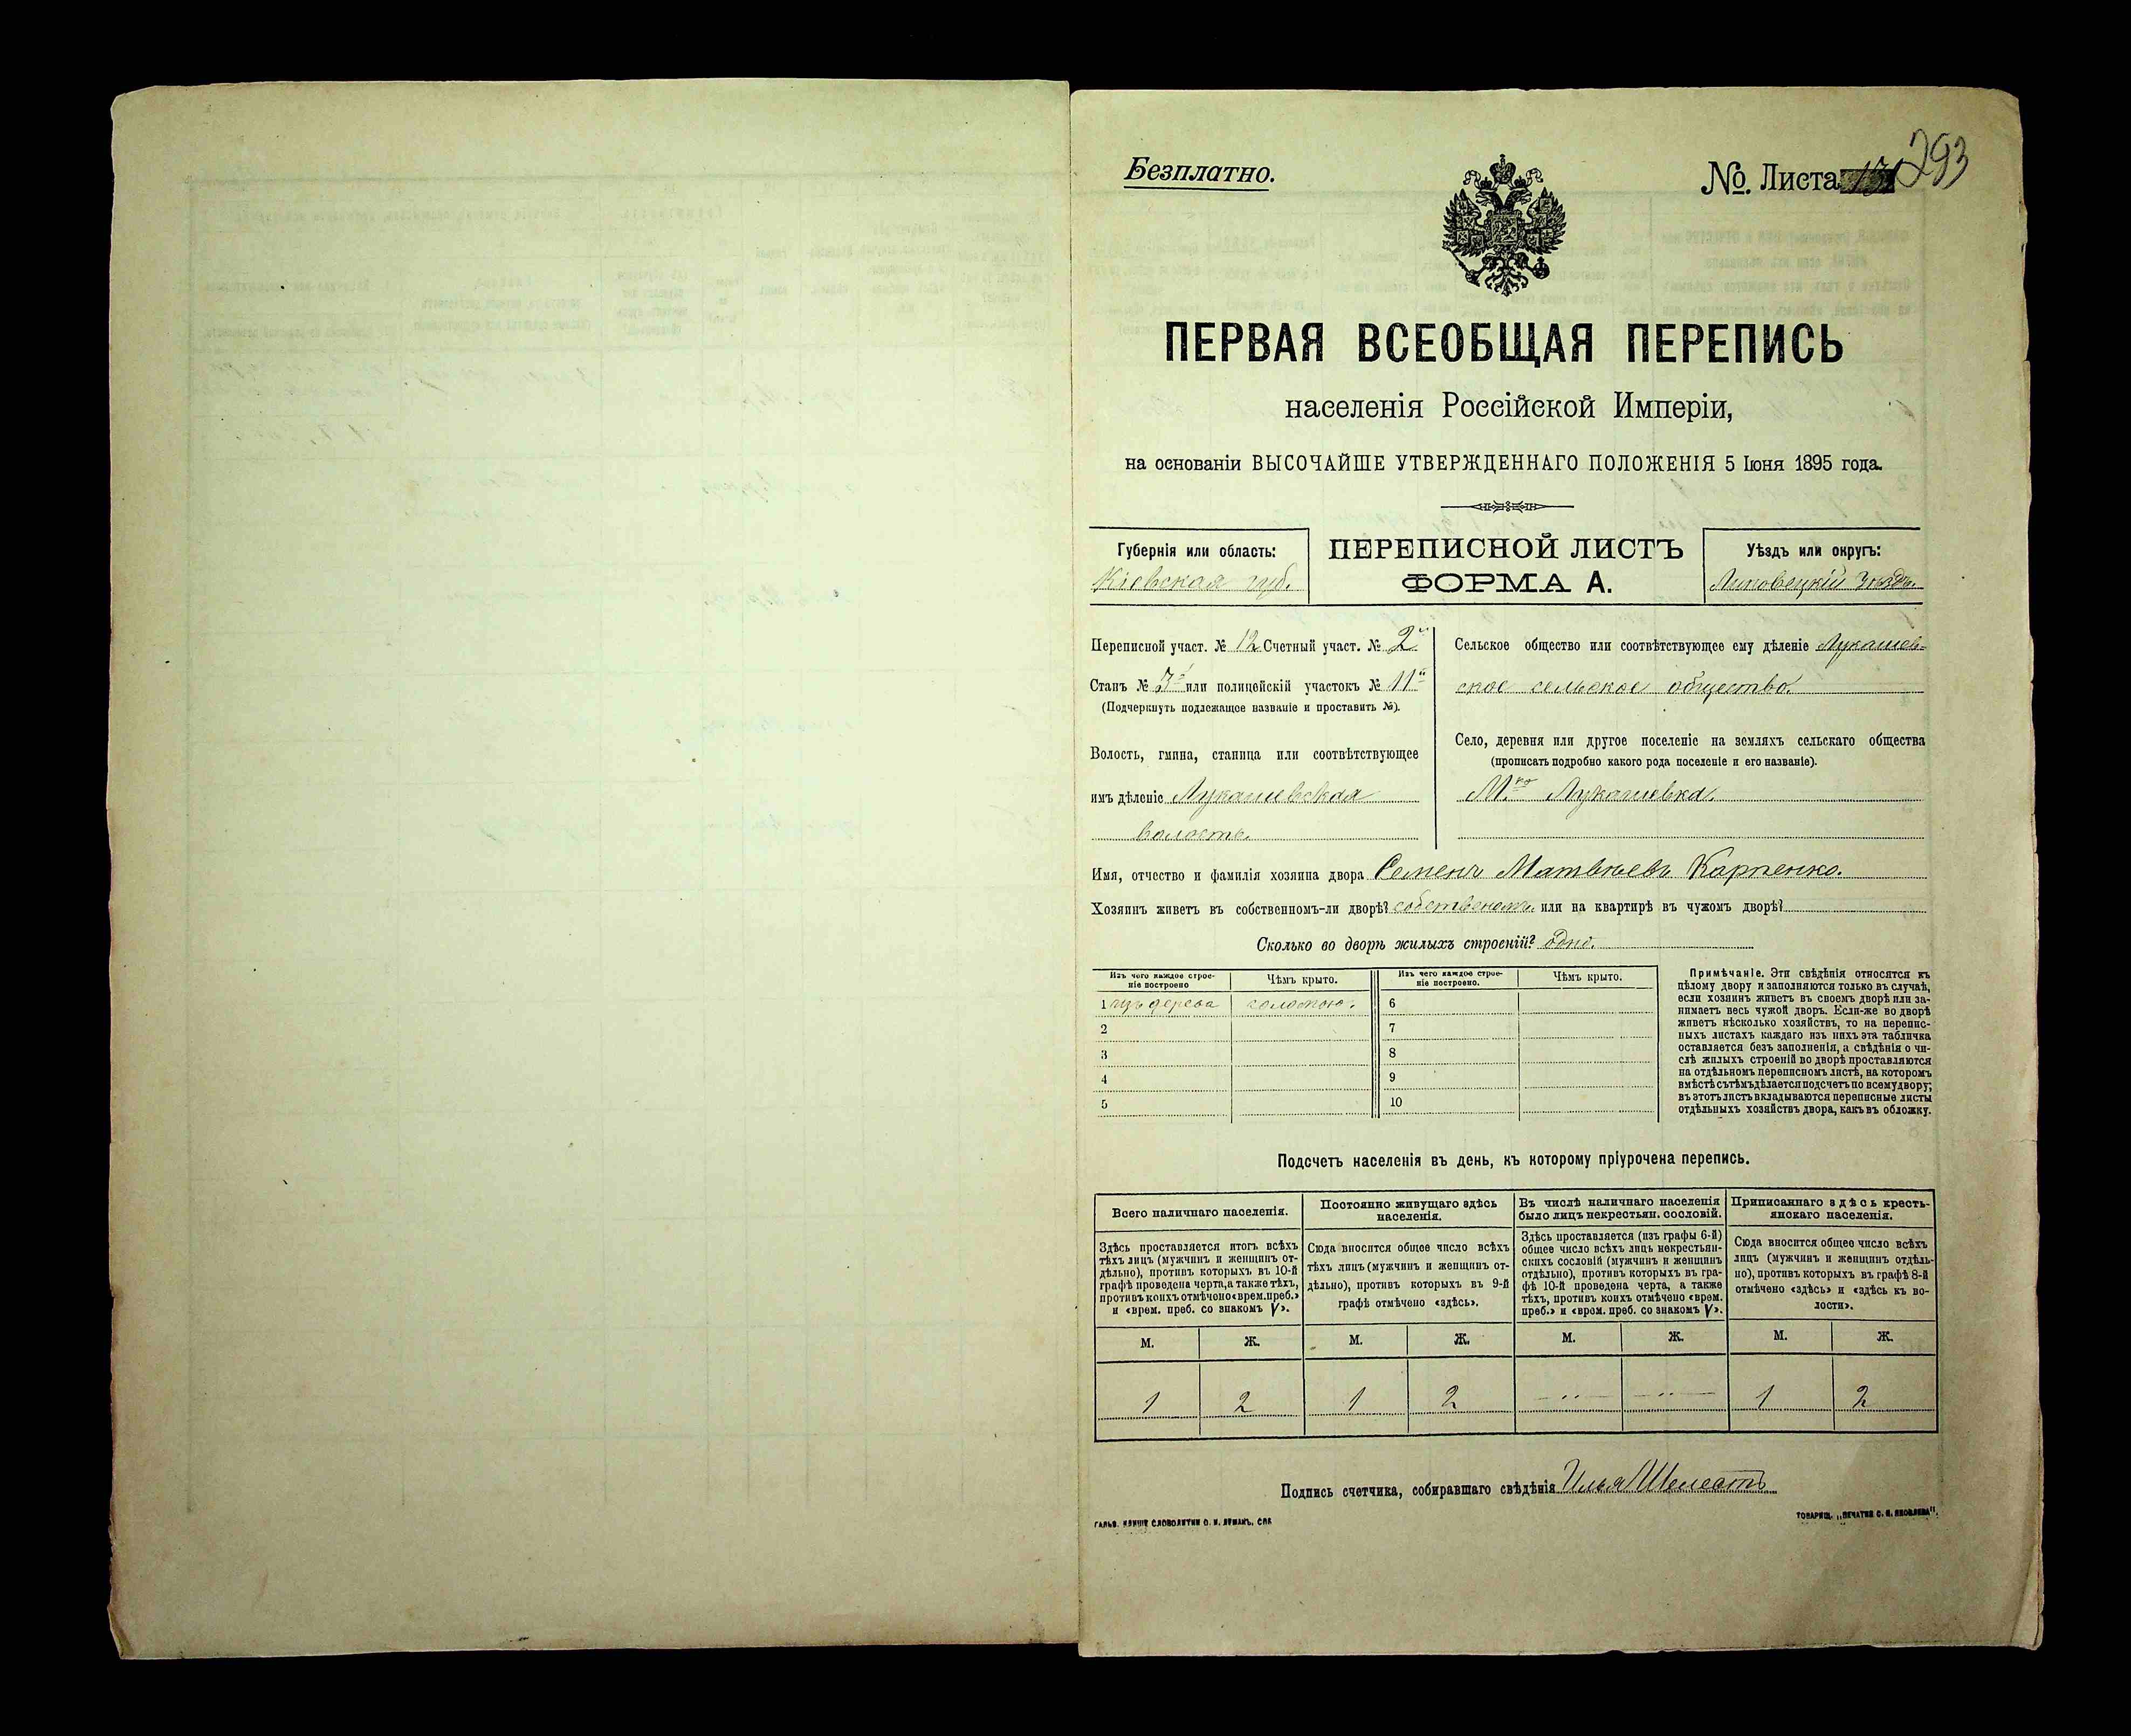 Безплатно.
№. Листа 293
ПЕРВАЯ ВСЕОБЩАЯ ПЕРЕПИСЬ
населенія Россійской Имперіи,
на основаніи ВЫСОЧАЙШЕ УТВЕРЖДЕННАГО ПОЛОЖЕНІЯ 5 Іюня 1895 года.
Губернія или область:
Кіевская губ.
ПЕРЕПИСНОЙ ЛИСТЪ
ФОРМА А.
Уѣздъ или округъ:
Липовецкій
Переписной участ. № 12 Счетный участ. № 2й
Станъ № 3й или полицейскій участокъ № 11й
(Подчеркнуть подлежащее названіе и проставить №).
Волость, гмина, станица или соотвѣтствующее
имъ дѣленіе Лукашевская
волость.
Сельское общество или соотвѣтствующее ему дѣленіе Лукашев-
ское сельское общество.
Село, деревня или другое поселеніе на земляхъ сельскаго общества
(прописать подробно какого рода поселеніе и его названіе).
М.ко Лукашевка.
Имя, отчество и фамилія хозяина двора Семенъ Матвѣевъ Карпенко.
Хозяинъ живетъ въ собственномъ-ли дворѣ? собственомъ. или на квартирѣ въ чужомъ дворѣ?
Сколько во дворѣ жилыхъ строеній? одно.
Изъ чего каждое строе-
ніе построено
Чѣмъ крыто.
Изъ чего каждое строе-
ніе построено.
Чѣмъ крыто.
1 изъ дерева соломою. 6
2 7
3 8
4 9
5 10
Примѣчаніе. Эти свѣдѣнія относятся къ
цѣлому двору и заполняются только въ случаѣ,
если хозяинъ живетъ въ своемъ дворѣ или за-
нимаетъ весь чужой дворъ. Если-же во дворѣ
живетъ нѣсколько хозяйствъ, то на перепис-
ныхъ листахъ каждаго изъ нихъ эта табличка
оставляется безъ заполненія, а свѣдѣнія о чи-
слѣ жилыхъ строеній во дворѣ проставляются
на отдѣльномъ переписномъ листѣ, на которомъ
вмѣстѣ съ тѣмъ дѣлается подсчетъ по всему двору;
въ этотъ листъ вкладываются переписные листы
отдѣльныхъ хозяйствъ двора, какъ въ обложку.
Подсчетъ населенія въ день, къ которому пріурочена перепись.
Всего наличнаго населенія.
Здѣсь проставляется итогъ всѣхъ
тѣхъ лицъ (мужчинъ и женщинъ от-
дѣльно), противъ которыхъ въ 10-й
графѣ проведена черта, а также тѣхъ,
противъ коихъ отмѣчено «врем. преб.»
и «врем. преб. со знакомъ V».
Постоянно живущаго здѣсь
населенія.
Сюда вносится общее число всѣхъ
тѣхъ лицъ (мужчинъ и женщинъ от-
дѣльно), противъ которыхъ въ 9-й
графѣ отмѣчено «здѣсь».
Въ числѣ наличнаго населенія
было лицъ некрестьян. сословій.
Здѣсь проставляется (изъ графы 6-й)
общее число всѣхъ лицъ некрестьян-
скихъ сословій (мужчинъ и женщинъ
отдѣльно), противъ которыхъ въ гра-
фѣ 10-й проведена черта, а также
тѣхъ, противъ коихъ отмѣчено «врем.
преб.» и «врем. преб. со знакомъ V».
Приписаннаго здѣсь кресть-
янскаго населенія.
Сюда вносится общее число всѣхъ
лицъ (мужчинъ и женщинъ отдѣль-
но), противъ которыхъ въ графѣ 8-й
отмѣчено «здѣсь» и «здѣсь къ во-
лости».
М. Ж. М. Ж. М. Ж. М. Ж.
1 2 1 2 — „ — — „ — 1 2
Подпись счетчика, собиравшаго свѣдѣнія Илья Шелестъ